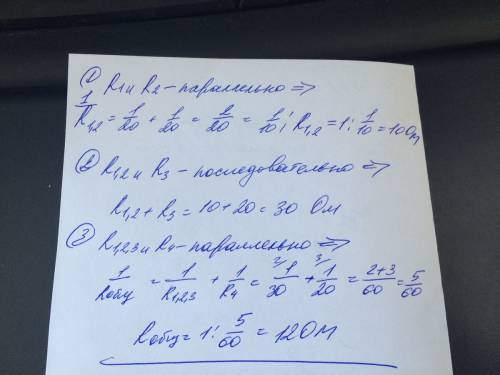 ① R1 и R2 - параллельно ⇒
1/R1,2 = 1/20 + 1/20 = 2/20 = 1/10; R1,2 = 1 : 1/10 = 10 Ом
② R1,2 и R3 - последовательно ⇒
R1,2 + R3 = 10 + 20 = 30 Ом
③ R1,2,3 и R4 - параллельно ⇒
1/Rобщ = 1/R1,2,3 + 1/R4 = 2/ 1/30 + 3/ 1/20 = 2+3/60 = 5/60
Rобщ = 1 : 5/60 = 12 Ом